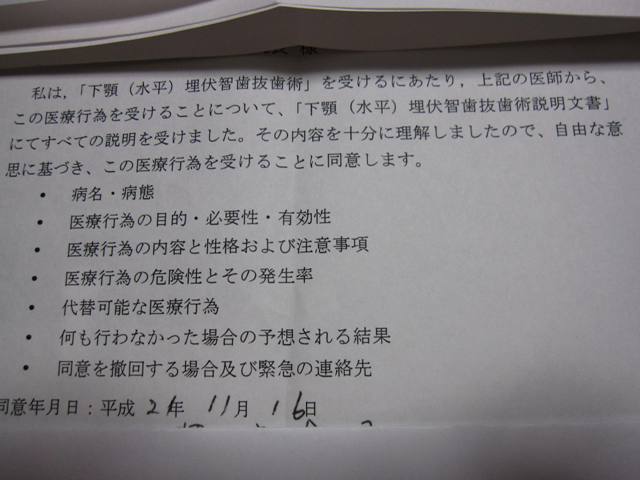 様
私は，「下顎（水平）埋伏智歯抜歯術」を受けるにあたり，上記の医師から、
この医療行為を受けることについて、「下顎（水平）埋伏智歯抜歯術説明文書」
にてすべての説明を受けました。その内容を十分に理解しましたので、自由な意
思に基づき、この医療行為を受けることに同意します。
• 病名・病態
• 医療行為の目的・必要性・有効性
• 医療行為の内容と性格および注意事項
• 医療行為の危険性とその発生率
• 代替可能な医療行為
• 何も行わなかった場合の予想される結果
• 同意を撤回する場合及び緊急の連絡先
同意年月日：平成 21年 11月 16日